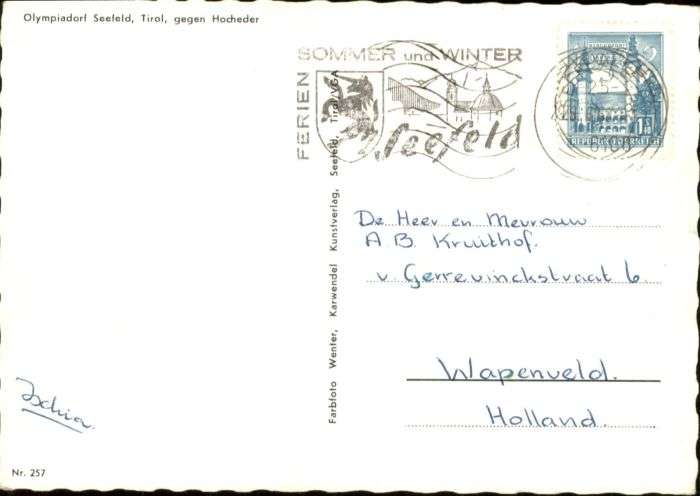 Olympiadorf Seefeld, Tirol, gegen Hocheder
FERIEN
SOMMER und WINTER
Seefeld
REPUBLIK ÖSTERREICH
Farbfoto Wenter, Karwendel Kunstverlag, Seefeld, Tirol/VGA
De Heer en Mevrouw
A B. Kruithof.
v. Gerrevinckstraat 6.
Wapenveld.
Holland.
Ischia.
Nr. 257